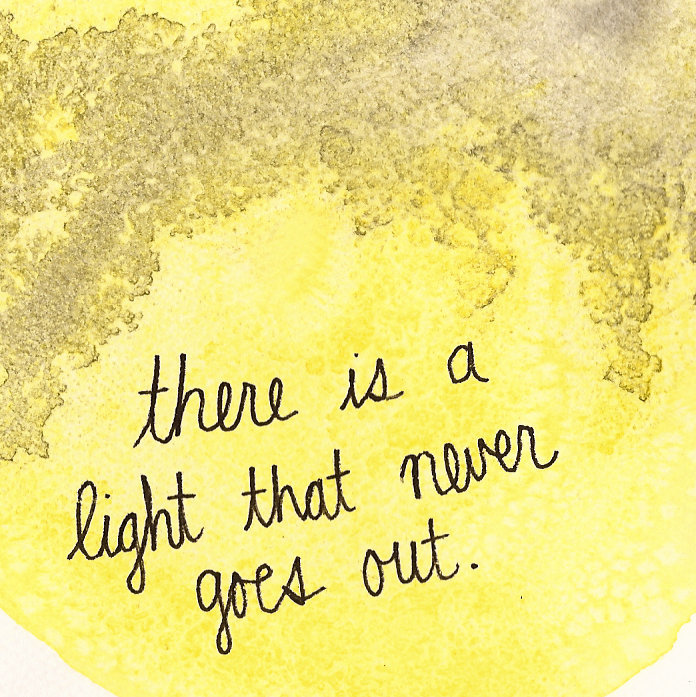 there is a
light that never
goes out.